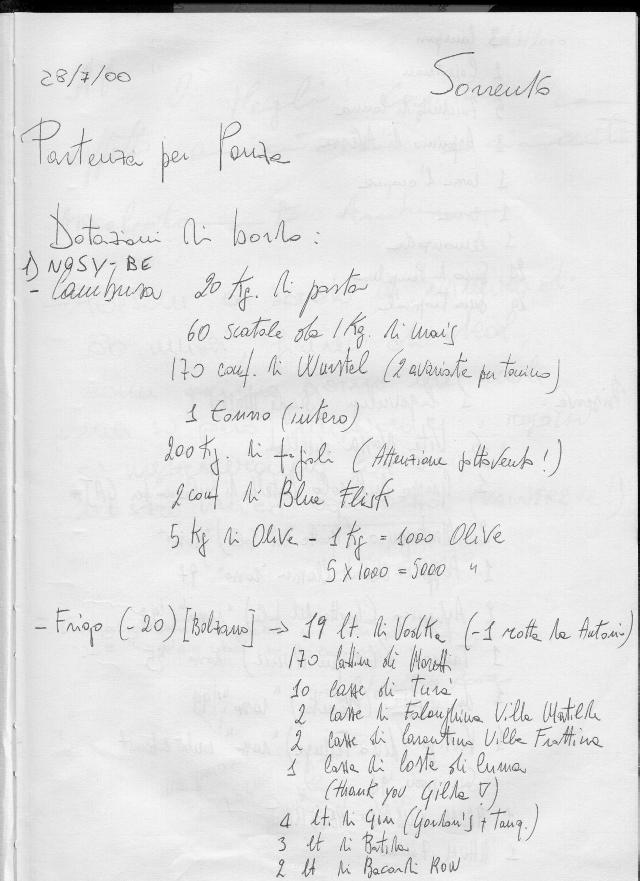 28/7/00
Sorrento
Partenza per Ponza
Dotazioni di bordo:
1) NQSY-BE
- Cambusa 20 Kg. di pasta
60 scatole da 1 Kg. di mais
170 conf. di Wurstel (2 avariate per tonino)
1 tonno (intero)
200 Kg. di fagioli (Attenzione sottovento!)
2 conf di Blue
5 Kg di Olive - 1 Kg = 1000 Olive
5 x 1000 = 5000 "
- Frigo (-20) [Bolzano] => 19 lt. di Vodka (-1 rotta da Antonio)
170 lattine di Moretti
10 casse di Turà
2 casse di Falanghina Villa Matilde
2 casse di Villa Frattina
1 cassa di Coste di Luna
(thank you Gilda ▽)
4 lt. di Gin (Gordon's + Tanq.)
3 lt di Batida
2 lt di Bacardi ROW